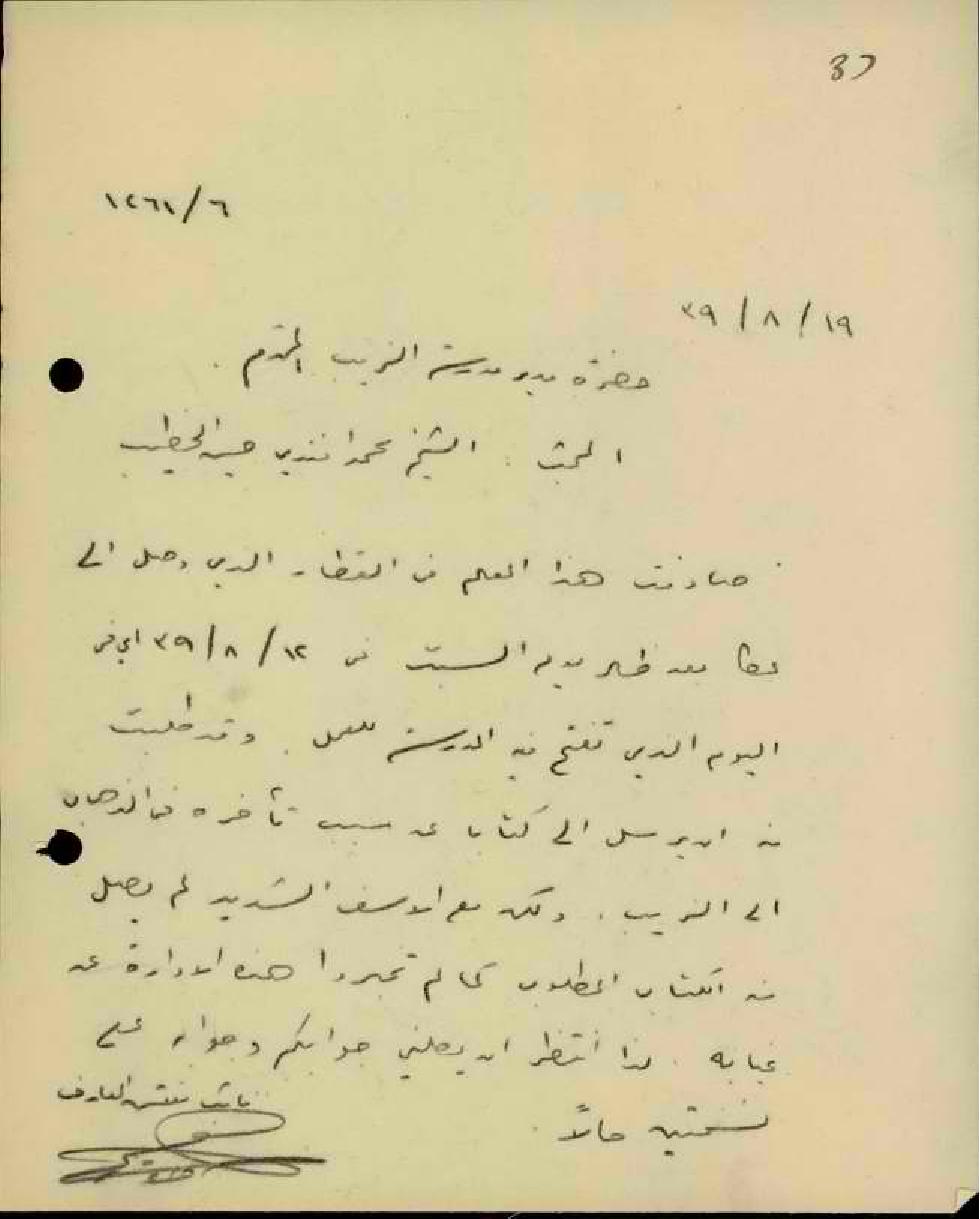 37
١٢٦١/٦
٣٩/٨/١٩
حضرة مدير مدرسة الزيب المحترم.
المبحث : الشيخ محمد افندي حسين الخطيب
صادفت هذا المعلم في القطار الذي وصل الى
عكا بعد ظهر يوم السبت في ٣٩/٨/١٢ اي في
اليوم الذي تفتح فيه المدرسة للعمل. وقد طلبت
منه ان يرسل الي كتابا عن سبب تأخره في الذهاب
الى الزيب. ولكن مع الاسف الشديد لم يصل
منه الكتاب المطلوب كما لم تخبروا هذه الادارة عن
غيابه. لذا انتظر ان يصلني جوابكم وجوابه على
نسختين حالاً.
نائب مفتش المعارف